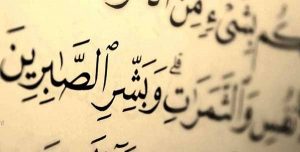 كُم بِشَىْءٍ مِّنَ
نفُسِ وَٱلثَّمَرَٰتِ ۗ وَبَشِّرِ ٱلصَّٰبِرِينَ